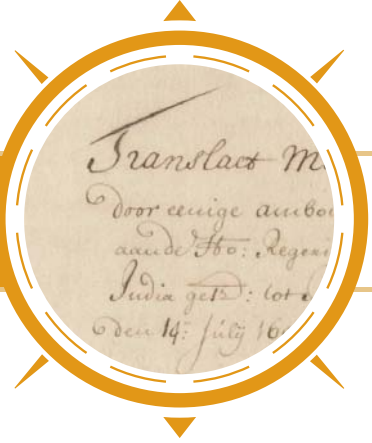 Translaet M
door eenige amboi
aan de Ho: Regeri
India get: tot
den 14: Julij 16